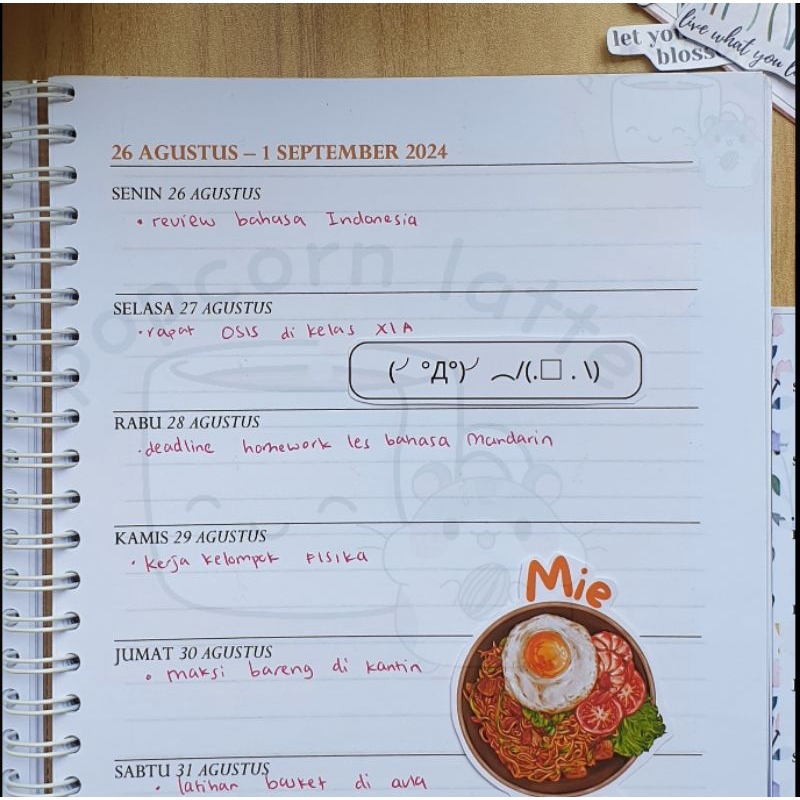 let you
bloss
live what you l
26 AGUSTUS – 1 SEPTEMBER 2024
SENIN 26 AGUSTUS
• review bahasa Indonesia
popcorn latte
SELASA 27 AGUSTUS
• rapat OSIS di kelas XI A
(╯°Д°)╯ ︵/(.□ . \)
RABU 28 AGUSTUS
• deadline homework les bahasa mandarin
KAMIS 29 AGUSTUS
• kerja kelompok FISIKA
Mie
JUMAT 30 AGUSTUS
• maksi bareng di kantin
SABTU 31 AGUSTUS
• latihan basket di aula